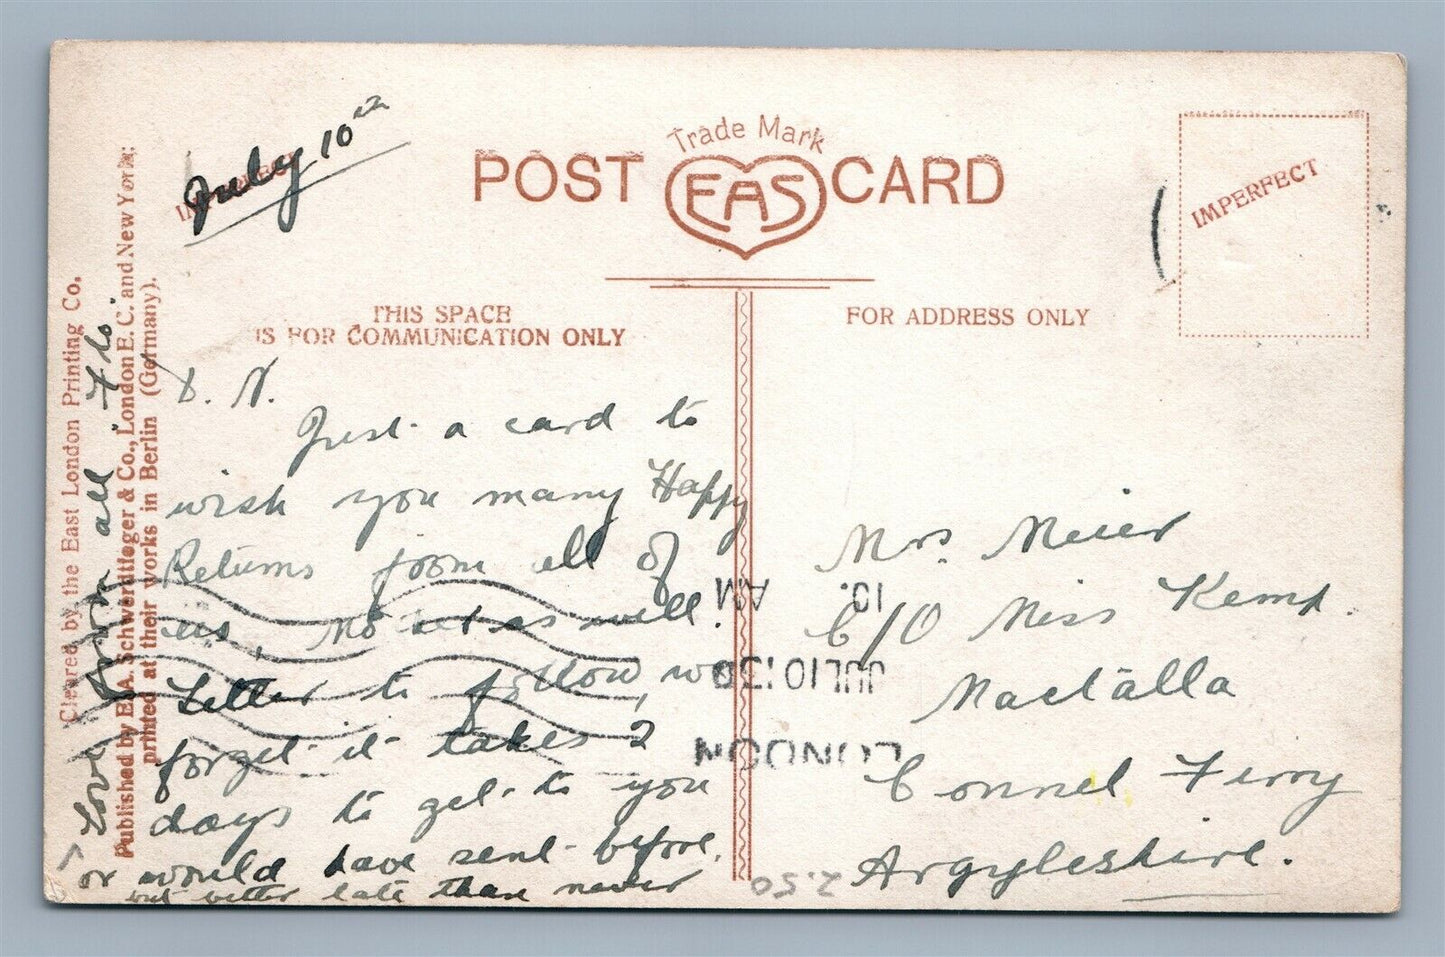 July 10th
IMPERFECT
Trade Mark
POST EAS CARD
IMPERFECT
THIS SPACE
IS FOR COMMUNICATION ONLY
FOR ADDRESS ONLY
D. N.
Just a card to
wish you many Happy
Returns from all of
us, no let as well.
Letter to follow,
forget it takes 2
days to get to you
or would have sent before,
but better late than never
Love from all. Flo.
Mrs. Meier
C/O Miss Kemp.
Mactálla
Connel Ferry
Argyleshire.
LONDON
JUL10 30
10. AM
2.50
Cleared by the East London Printing Co.
Published by E.A. Schwerdtfeger & Co., London E.C. and New York;
printed at their works in Berlin (Germany).